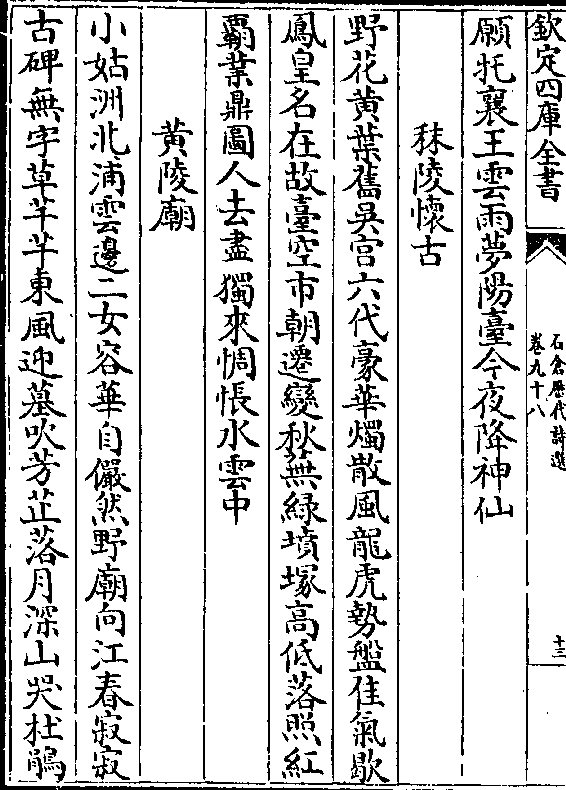 欽定四庫全書
石倉歷代詩選
卷九十八
十三
願托襄王雲雨夢陽臺今夜降神仙
秣陵懷古
野花黃葉舊吳宫六代豪華燭散風龍虎勢盤佳氣歇
鳳皇名在故臺空市朝遷變秋蕪緑墳塚高低落照紅
霸業鼎圖人去盡獨來惆悵水雲中
黃陵廟
小姑洲北浦雲邊二女容華自儼然野廟向江春寂寂
古碑無字草芊芊東風迎墓吹芳芷落月深山哭杜鵑